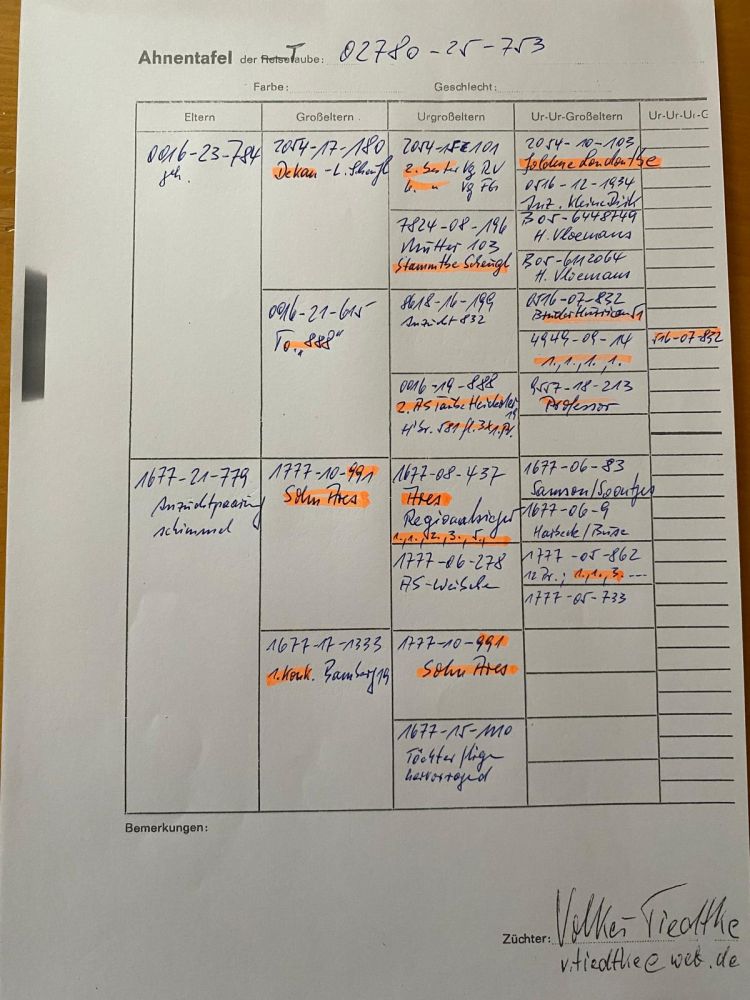 Ahnentafel der Taube: 02780-25-753
Farbe: Geschlecht:
Eltern Großeltern Urgroßeltern Ur-Ur-Großeltern Ur-Ur-Ur-G
0016-23-784
2054-17-180
Dekan - L. Scheugl
2054-15-101
2. bester Vg RV
6. " Vg FG
2054-10-103
Goldene Londontbe
0516-12-1934
Anz. kleine Dirk
7824-08-196
Mutter 103
Stammtbe Scheugl
B05-6448749
H. Vloemans
B05-6112064
H. Vloemans
0016-21-615
To. „888"
8618-16-199
Anzucht 832
0516-07-832
Bruder Hurrican 51
4949-09-14
1., 1., 1., 1.
516-07-832
0016-19-888
2. AS Taube
19
581 fl. 3x1. Pr.
9557-18-213
Professor
1677-21-779
Anzuchtpaarung
schimmel
1777-10-991
Sohn Ares
1677-08-437
Ares
Regionalsieger
1., 1., 2., 3., 5.,
1677-06-83
Samson/Soontjes
1677-06-9
Harbeck/Buse
1777-06-278
AS-Weibchen
1777-05-862
12 Pr.; 1., 1., 3. ---
1777-05-733
1677-17-1333
1. Konk. Bamberg 19
1777-10-991
Sohn Ares
1677-15-1110
Töchter fliegen
hervorragend
Bemerkungen:
Züchter: Volker Tiedtke
v.tiedtke@web.de